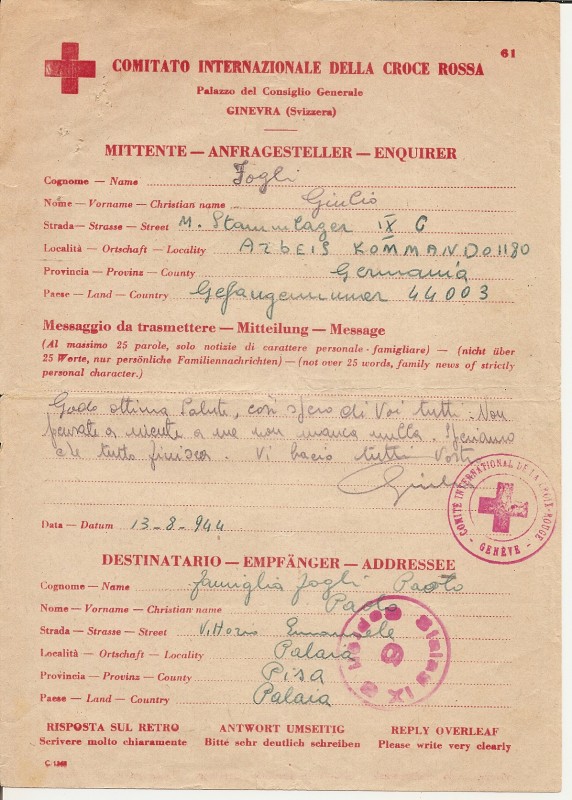 61
COMITATO INTERNAZIONALE DELLA CROCE ROSSA
Palazzo del Consiglio Generale
GINEVRA (Svizzera)
MITTENTE — ANFRAGESTELLER — ENQUIRER
Cognome — Name Fogli
Nome — Vorname — Christian name Giulio
Strada — Strasse — Street M. Stammlager IX C
Località — Ortschaft — Locality ARBEIS KOMMANDO 1180
Provincia — Provinz — County Germania
Paese — Land — Country Gefangenummer 44003
Messaggio da trasmettere — Mitteilung — Message
(Al massimo 25 parole, solo notizie di carattere personale - famigliare) — (nicht über
25 Worte, nur persönliche Familiennachrichten) — (not over 25 words, family news of strictly
personal character.)
Godo ottima Salute, così spero di Voi tutti. Non
pensate a niente a me non manca nulla. Speriamo
che tutto finisca. Vi bacio tutti Vostro
Giulio
COMITÉ INTERNATIONAL DE LA CROIX-ROUGE
GENÈVE
Data — Datum 13-8-944
DESTINATARIO — EMPFÄNGER — ADDRESSEE
Cognome — Name famiglia Fogli Paolo
Nome — Vorname — Christian name Paolo
Strada — Strasse — Street Vittorio Emanuele
Località — Ortschaft — Locality Palaia
Provincia — Provinz — County Pisa
Paese — Land — Country Palaia
Geprüft
6
Stalag IX C
RISPOSTA SUL RETRO ANTWORT UMSEITIG REPLY OVERLEAF
Scrivere molto chiaramente Bitte sehr deutlich schreiben Please write very clearly